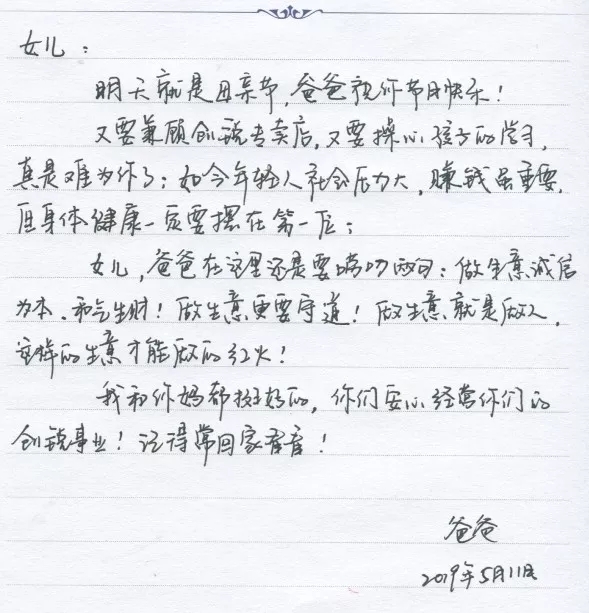 女儿：
明天就是母亲节，爸爸祝你节日快乐！
又要兼顾创锐专卖店，又要操心孩子的学习，
真是难为你了；如今年轻人社会压力大，赚钱虽重要，
但身体健康一定要摆在第一位；
女儿，爸爸在这里还是要唠叨两句：做生意诚信
为本、和气生财！做生意更要守道！做生意就是做人，
这样的生意才能做的红火！
我和你妈都挺好的，你们安心经营你们的
创锐事业！记得常回家看看！
爸爸
2019年5月11日